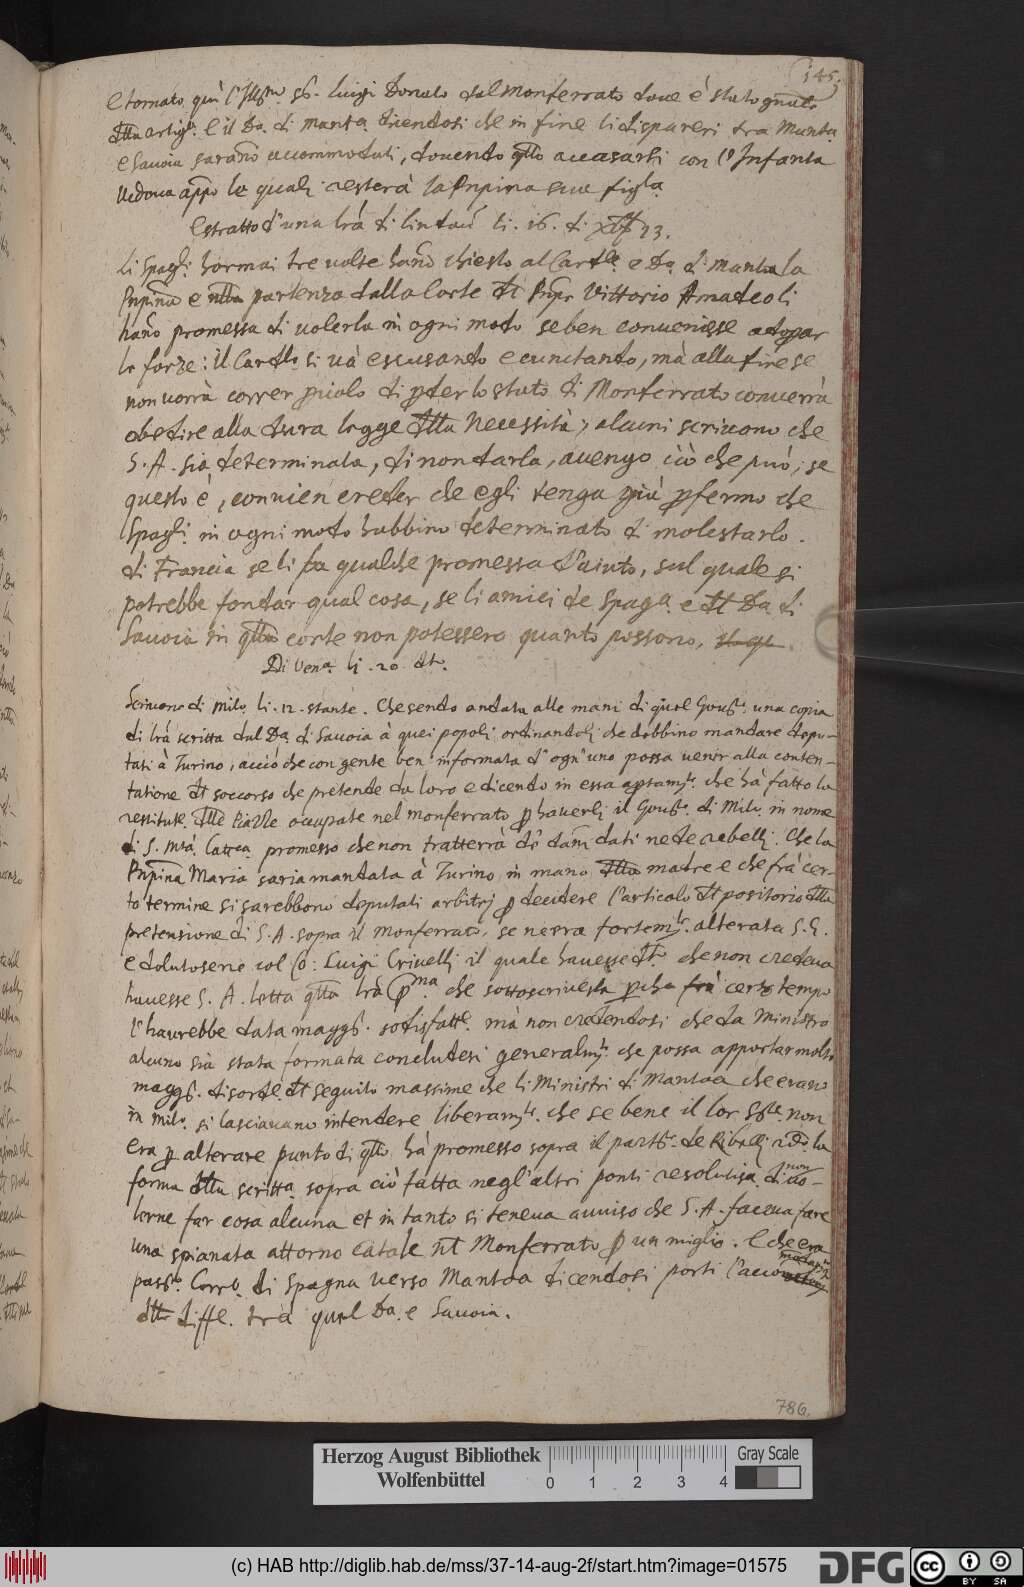 145.
E tornato quì l'Illmo Sr. Luigi Donato dal Monferrato doue è stato gñale
della artigl. e il Da. di Manta. dicendosi che in fine li dispareri tra Manta.
e Sauoia sarano accommodati, douendo qllo accasarsi con l'Infanta
Vedoua appo la quale resterà la Pnpina sua figla.
Estratto d'una lrà di li. 16. di 13.
Li Spagli. hormai tre uolte hano chiesto al Cardle. e Da. di Manta la
Pnpina e nlla partenza dalla Corte del Pnpe Vittorio Amadeo li
hano promessa di uolerla in ogni modo seben conuenisse adopar
le forze: Il Cardle si và escusando e cunctando, mà alla fine se
non uorrà correr piculo di pder lo stato di Monferrato conuerrà
obedire alla dura legge della Necessità, alcuni scriuono che
S. A. sia determinata, di non darla, auenga ciò che può, se
questo è, conuien creder che egli tenga già p fermo che
Spagli. in ogni modo habbino determinato di molestarlo.
di Francia se li fa qualche promessa d'aiuto, sul quale si
potrebbe fondar qual cosa, se li amici de Spaga. e del Da. di
Sauoia in qlla corte non potessero quanto possono,
Di Vena. li. 20. do.
Scriuono di Milo. li. 12. stante. Che sendo andata alle mani di quel Gour. una copia
di lrà scritta dal Da. di Sauoia à quei popoli ordinandoli che debbino mandare depu-
tati à Turino, acciò che con gente ben informata d'ogn'uno possa uenir alla conten-
tatione del soccorso che pretende da loro e dicendo in essa aptamte. che hà fatto la
restitute. delle Piazze occupate nel Monferrato p hauerli il Gour. di Milo. in nome
di S. Mtà. Cattca. promesso che non tratterà de dani dati ne de rebelli. Che la
Pnpina Maria saria mandata à Turino in mano della madre e che frà cer-
to termine si sarebbono deputati arbitrj p decidere l'articolo del positorio della
pretensione di S. A. sopra il Monferrato, se ne era fortemte. alterata S. E.
e dolutosene col Co: Luigi Criuelli il quale hauesse do. che non credeua
hauesse S. A. letta qlla lrà pma. che sottoscriuerla pche frà certo tempo
l'haurebbe data maggr. sodisfatte. mà non credendosi che da Ministro
alcuno sia stata formata concludesi generalmte. che possa apportar molto
maggr. disorde. del seguito massime che li Ministri di Mantoa che erano
in Milo. si lasciauano intendere liberamte. che se bene il lor Sre. non
era p alterare punto di qllo. hà promesso sopra il partr. de Ribelli rdo. la
forma della scritta. sopra ciò fatta negl'altri ponti resolutisà. di non uo-
lerne far cosa alcuna et in tanto si teneua auuiso che S. A. faceua fare
una spianata attorno Casale nel Monferrato p un miglio. E che era
passo. Corro. di Spagna uerso Mantoa dicendosi porti l'accomodam.
delle diffe. trà quel Da. e Sauoia.
786.
Herzog August Bibliothek
Wolfenbüttel
0 1 2 3 4
Gray Scale
(c) HAB http://diglib.hab.de/mss/37-14-aug-2f/start.htm?image=01575
DFG
cc BY SA